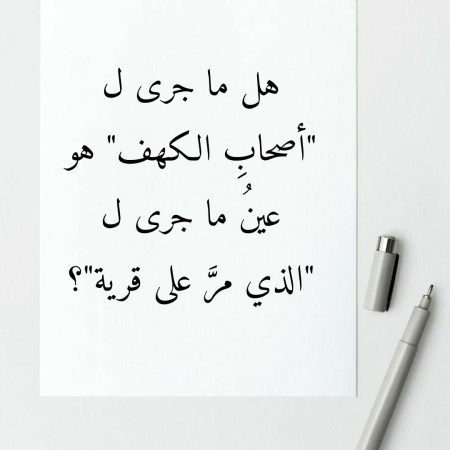 هل ما جرى ل
"أصحابِ الكهف" هو
عينُ ما جرى ل
"الذي مرَّ على قرية"؟